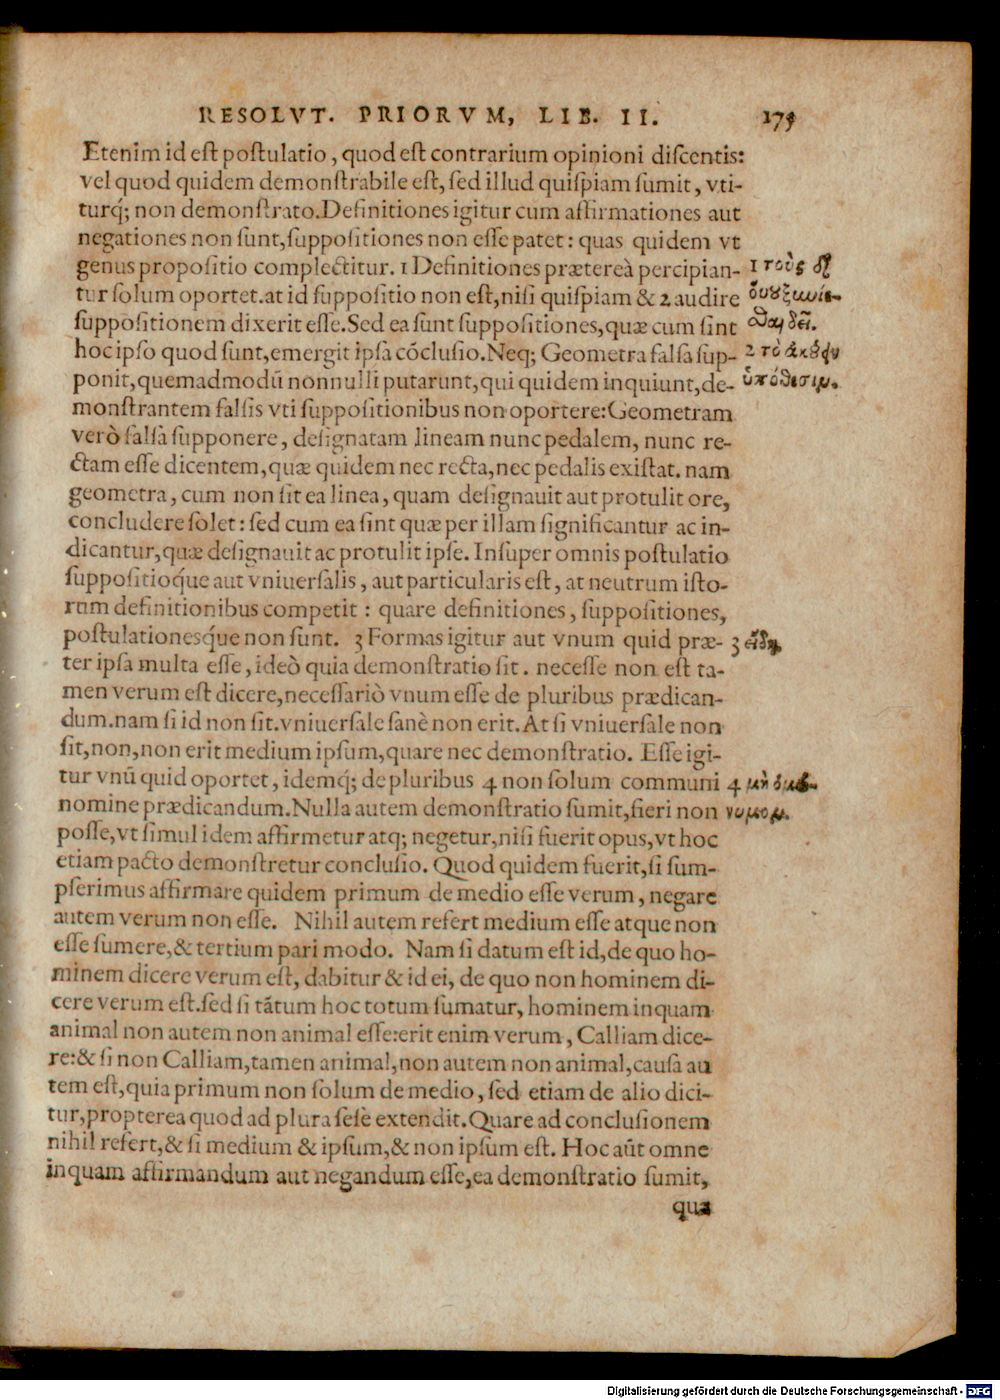 RESOLVT. PRIORVM, LIB. II. 175
Etenim id est postulatio, quod est contrarium opinioni discentis:
vel quod quidem demonstrabile est, sed illud quispiam sumit, vti-
turq́; non demonstrato. Definitiones igitur cum affirmationes aut
negationes non sunt, suppositiones non esse patet: quas quidem vt
genus propositio complectitur. 1 Definitiones prætereà percipian-
tur solum oportet. at id suppositio non est, nisi quispiam & 2 audire
suppositionem dixerit esse. Sed ea sunt suppositiones, quæ cum sint
hoc ipso quod sunt, emergit ipsa cóclusio. Neq; Geometra falsa sup-
ponit, quemadmodū nonnulli putarunt, qui quidem inquiunt, de-
monstrantem falsis vti suppositionibus non oportere: Geometram
verò falsa supponere, designatam lineam nunc pedalem, nunc re-
ctam esse dicentem, quæ quidem nec recta, nec pedalis existat. nam
geometra, cum non sit ea linea, quam designauit aut protulit ore,
concludere solet: sed cum ea sint quæ per illam significantur ac in-
dicantur, quæ designauit ac protulit ipse. Insuper omnis postulatio
suppositioq́ue aut vniuersalis, aut particularis est, at neutrum isto-
rum definitionibus competit: quare definitiones, suppositiones,
postulationesq́ue non sunt. 3 Formas igitur aut vnum quid præ-
ter ipsa multa esse, ideò quia demonstratio sit. necesse non est ta-
men verum est dicere, necessariò vnum esse de pluribus prædican-
dum. nam si id non sit. vniuersale sanè non erit. At si vniuersale non
sit, non, non erit medium ipsum, quare nec demonstratio. Esse igi-
tur vnū quid oportet, idemq́; de pluribus 4 non solum communi
nomine prædicandum. Nulla autem demonstratio sumit, fieri non
posse, vt simul idem affirmetur atq; negetur, nisi fuerit opus, vt hoc
etiam pacto demonstretur conclusio. Quod quidem fuerit, si sum-
pserimus affirmare quidem primum de medio esse verum, negare
autem verum non esse. Nihil autem refert medium esse atque non
esse sumere, & tertium pari modo. Nam si datum est id, de quo ho-
minem dicere verum est, dabitur & id ei, de quo non hominem di-
cere verum est. sed si tātum hoc totum sumatur, hominem inquam
animal non autem non animal esse: erit enim verum, Calliam dice-
re: & si non Calliam, tamen animal, non autem non animal, causa au
tem est, quia primum non solum de medio, sed etiam de alio dici-
tur, propterea quod ad plura sese extendit. Quare ad conclusionem
nihil refert, & si medium & ipsum, & non ipsum est. Hoc aūt omne
inquam affirmandum aut negandum esse, ea demonstratio sumit,
qua
1 τοὺς
2 τὸ ἀκούειν
ὑπόθεσιν.
3 εἴδη.
4 μὴ ὁμώ-
νυμον.
Digitalisierung gefördert durch die Deutsche Forschungsgemeinschaft - DFG